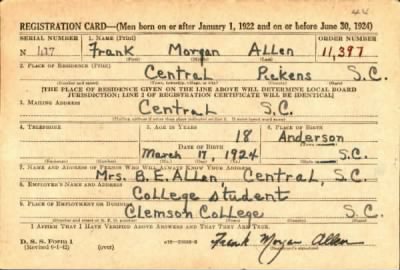 REGISTRATION CARD—(Men born on or after January 1, 1922 and on or before June 30, 1924)
SERIAL NUMBER 1. NAME (Print) ORDER NUMBER
N Frank Morgan Allen 11,397
(First) (Middle) (Last)
2. PLACE OF RESIDENCE (Print)
Central Pickens S.C.
[THE PLACE OF RESIDENCE GIVEN ON THE LINE ABOVE WILL DETERMINE LOCAL BOARD
JURISDICTION; LINE 2 OF REGISTRATION CERTIFICATE WILL BE IDENTICAL]
3. MAILING ADDRESS
Central S.C.
4. TELEPHONE 5. AGE IN YEARS 6. PLACE OF BIRTH
18 Anderson
DATE OF BIRTH
March 1924 S.C.
7. NAME AND ADDRESS OF PERSON WHO WILL ALWAYS KNOW YOUR ADDRESS
Mrs. B. E. Allen, Central, S.C.
8. EMPLOYER'S NAME AND ADDRESS
College student
9. PLACE OF EMPLOYMENT OR BUSINESS
Clemson College S.C.
I AFFIRM THAT I HAVE VERIFIED ABOVE ANSWERS AND THAT THEY ARE TRUE.
D. S. S. Form 1
(Revised 6-1-42) (over) Frank Morgan Allen